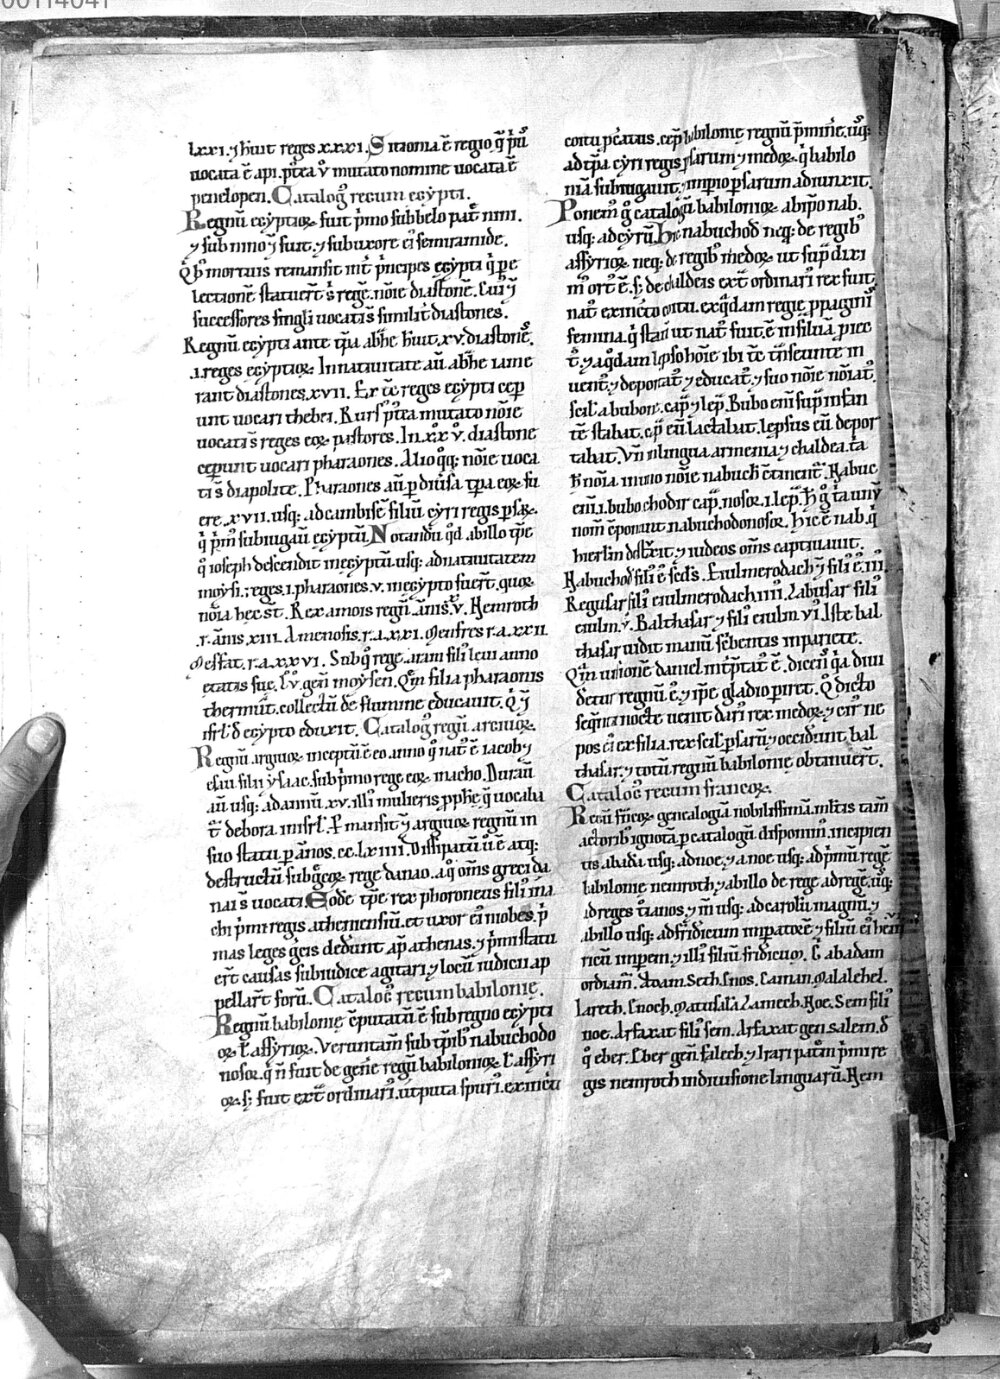 00114041
lxxi. ⁊ h̄uit reges xxxi. Sitioma ē regio q̄ p̄mū
uocata ē api. p̄tea v̄ mutato nomine uocata ē
penelopen. Catalog᷒ regum egypti.
Regnū egyptioꝝ fuit p̄mo sub belo pat̄ nini.
⁊ sub nino ⁊ fuit. ⁊ sub uxore ei᷒ semiramide.
Q̄b᷒ mortuis remansit
lectionē statuer̄t s̄ regē. noīe diastonē. Cui᷒ ⁊
successores singli uocati s̄ similit̄ diastones.
Regnū egypti ante tp̄a abh̄e h̄uit. xv. diastones.
.i. reges egyptioꝝ. In natiuitate aū abh̄e iam e
rant diastones. xvii. Ex tē reges egypti cep
unt uocari thebei. Rurs᷒ p̄tea mutato noīe
uocati s̄ reges eoꝝ pastores. In xxv. diastone
ceperunt uocari pharaones. Alio q̄q; noīe uoca
ti s̄ diapolite. Pharaones aū p̄ diuisa tp̄a eoꝝ fu
ere .xvii. usq; ad cambisē filiū cyri regis p̄saꝝ.
q̄ p̄m᷒ subiugau̅ egyptū. Notandū qd̄ ab illo tp̄e
q̄ ioseph descendit in egyptū usq; ad natiuitatem
moysi.; reges .i. pharaones .v. in egypto fuer̄t. quoꝝ
nōīa hec s̄t. Rex amois regn̄. annis. v. Hemroth
r. ānis xiii. Amenofis. r. a. xxi. Menfres r. a. xxii
Mesfat. r. a. xxvi. Sub q̄ rege aram fili᷒ leui anno
etatis sue. lv. gen̄ moysen. Qm̄ filia pharaonis
thermut̄. collectū de flumine educauit. Q̄ ⁊
isrl̄ d̄ egypto eduxit. Catalog᷒ regū argiuoꝝ.
Regnū argiuoꝝ inceptū ē eo anno q̄ nat᷒ ē iacob ⁊
esau. filii ysaac. sub p̄mo rege eoꝝ macho. Durau̅
aū usq; ad annū. xv. illi᷒ mulieris p̄phe q̄ uocaba
t̄ debora in isrl̄. P̄mansit ⁊ argiuoꝝ regnū in
suo statu p̄ ānos. cc. lxiiii. Dissipatū ū ē atq;
destructū sub gr̄eꝝ rege danao. a q̄ om̄s greci da
nai s̄ uocati. Eodē tp̄e rex phoroneus fili᷒ ina
chi p̄mi regis atheniensiū. et uxor ei᷒ niobes. p̄
mas leges grēis dederunt ap̄ athenas. ⁊ p̄mi statu
er̄t causas sub iudice agitari. ⁊ locū iudicii ap
pellar̄t forū. Catalog᷒ regum babilonie.
Regnū babilonie cōputatū ē sub regno egypti
oꝝ t̄ assyrioꝝ. Veruntam̄ sub tp̄ib᷒ nabuchodo
nosor. q̄ n̄ fuit de gen̄e regū babilonioꝝ t̄ assyri
oꝝ. s; fuit ext̄ ordinari᷒. utputa spuri᷒. ex inc̄tu
coitu pc̄atus. cep̄ babilonie regnū p̄mine. usq;
ad tp̄a cyri regis p̄sarum ⁊ medoꝝ. q̄ babilo
niā subiugauit. ⁊ imp̄io p̄sarum adiunxit.
Ponem᷒ g̊ catalogū babilonioꝝ ab ip̄o nab.
usq; ad cyrū. Hic nabuchod neq; de regib᷒
assyrioꝝ neq; de regib᷒ medoꝝ ut sup̄ dixi
m᷒ ort᷒ ē. s; de chaldeis ext̄ ordinari᷒ rex fuit.
nat᷒ ex incesto coitu. ex q̄dam regie p̄paginis
femina. q̄ statī ut nat᷒ fuit. ē in siluā p̄iec
t᷒. ⁊ a q̄dam lep̄so hoīe ibi tē tn̄seunte in
uent᷒ ⁊ deportat᷒ ⁊ educat᷒. ⁊ suo noīe noīat᷒.
scil̄ a bubone. cap̄ ⁊ lep̄. Bubo em̄ sup̄ infan
tē stabat. cap̄ eū lactabat. lepsus eū depor
tabat. Vn̄ in lingua armenia ⁊ chaldea. ta
h̄ noīa in uno noīe nabuch̄ ētinent᷒. Habuc
em̄ .i. bubo chodir cap̄. nosor .i. lep̄. h̄ g̊ tā unū
nom̄ cōponunt nabuchodonosor. Hic ē nab. q̄
hierl̄m destr̄xit. ⁊ iudeos om̄s captiuauit.
Nabuchod̄ fili᷒ ē scd̄s. Euilmerodach ⁊ fili᷒ ē. iii.
Regusar fili᷒ euilmerodach. iiii. Labusar fili᷒
euilm̄. v. Balthasar ⁊ fili᷒ euilm̄ vi. Iste bal
thasar uidit manū sc̄bentis in pariete.
Q̄m uisionē daniel int̄ptat᷒ ē. dicens q̄a diui
detur regnū ei᷒. ⁊ ip̄e gladio periret. Q̊ dicto
seq̄nti nocte uenit dari᷒ rex medoꝝ. ⁊ cir᷒ ne
pos ei᷒ ex filia. rex scil̄ p̄sarū. ⁊ occidunt bal
thasar. ⁊ totū regnū babilonie obtinuer̄t.
Catalog᷒ regum francoꝝ.
Regū fr̄ncoꝝ genealogiā nobilissimā. mltis tam̄
actorib᷒ ignotā. p̄ catalogū disponim᷒. incipien
tes ab ada usq; ad noe. ⁊ a noe usq; ad p̄mū regē
babilonie nemroth. ⁊ ab illo de rege ad regē. usq;
ad reges t̄ianos. ⁊ in̄ usq; ad carolū magnū. ⁊
ab illo usq; ad fridicum imp̄atorē ⁊ filiū ei᷒ hen
ricū imp̄em. ⁊ illi᷒ filiū fridicum. Ē ab adam
ordiam᷒. Adam. Seth. Enos. Cainan. Malalehel.
Iareth. Enoch. Matusalā. Lamech. Noe. Sem fili᷒
noe. Arfaxat fili᷒ sem. Arfaxat gen̄ salem. d̄
q̄ eber. Eber gen̄. falech. ⁊ Irari patrem p̄mi re
gis nemroth in diuisione linguarū. Nem